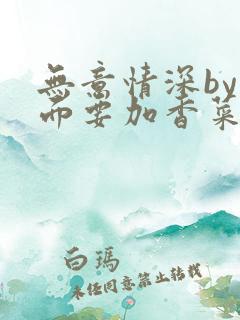 無意情深by
而要加香菜
白瑪
未经同意禁止转载